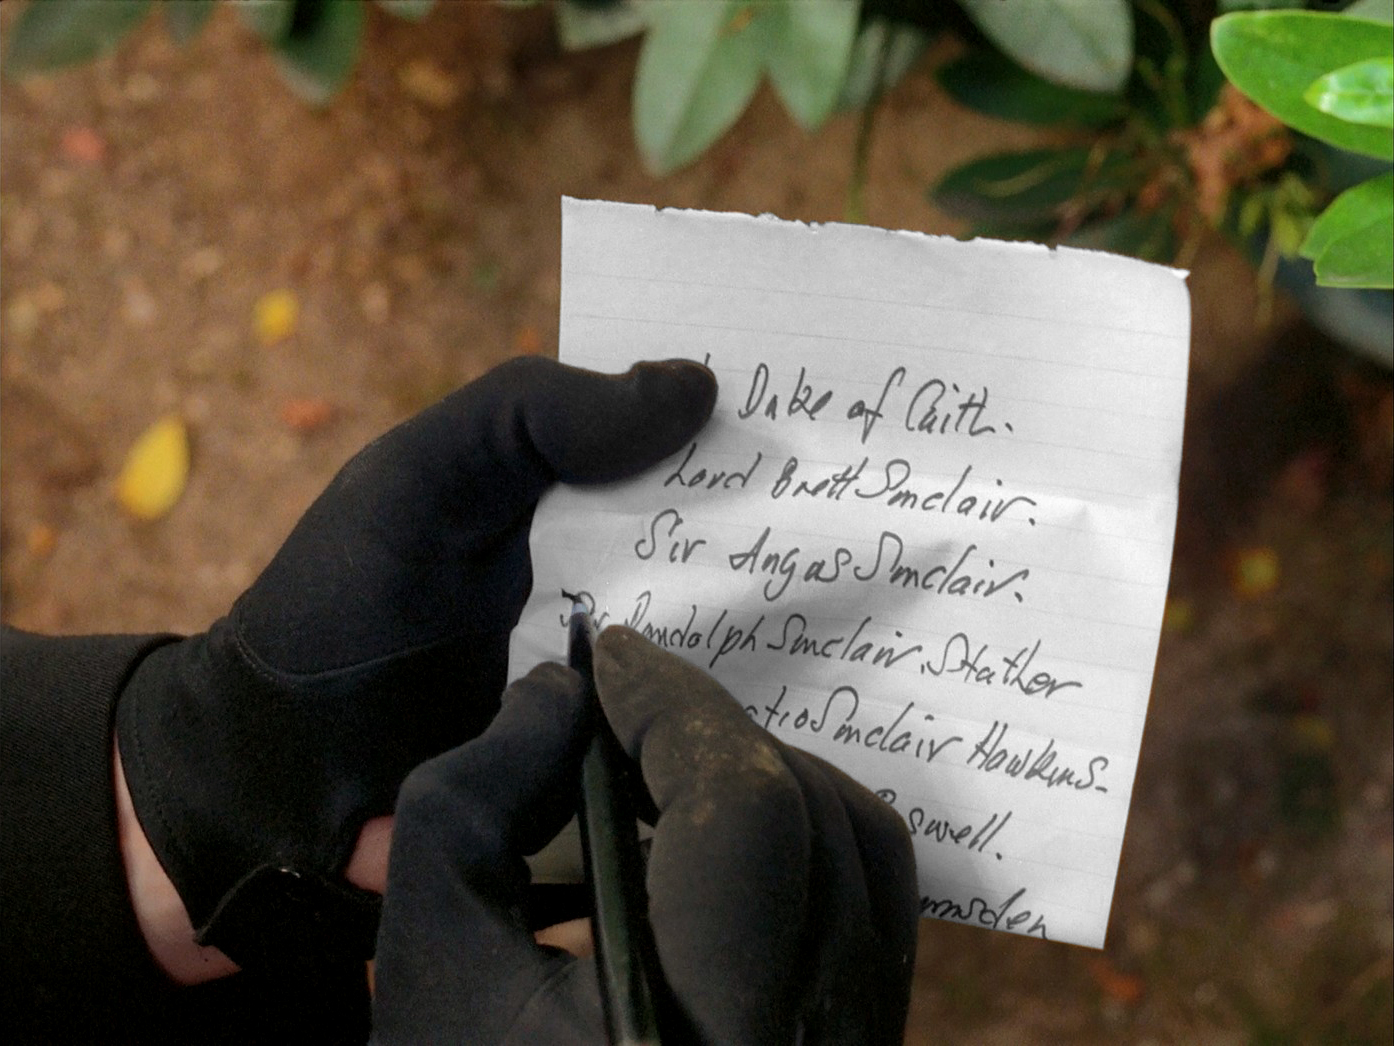 Duke of Caith.
Lord Brett Sinclair.
Sir Angus Sinclair.
Sir Randolph Sinclair. Stather
Sinclair Hawkins.
swell.